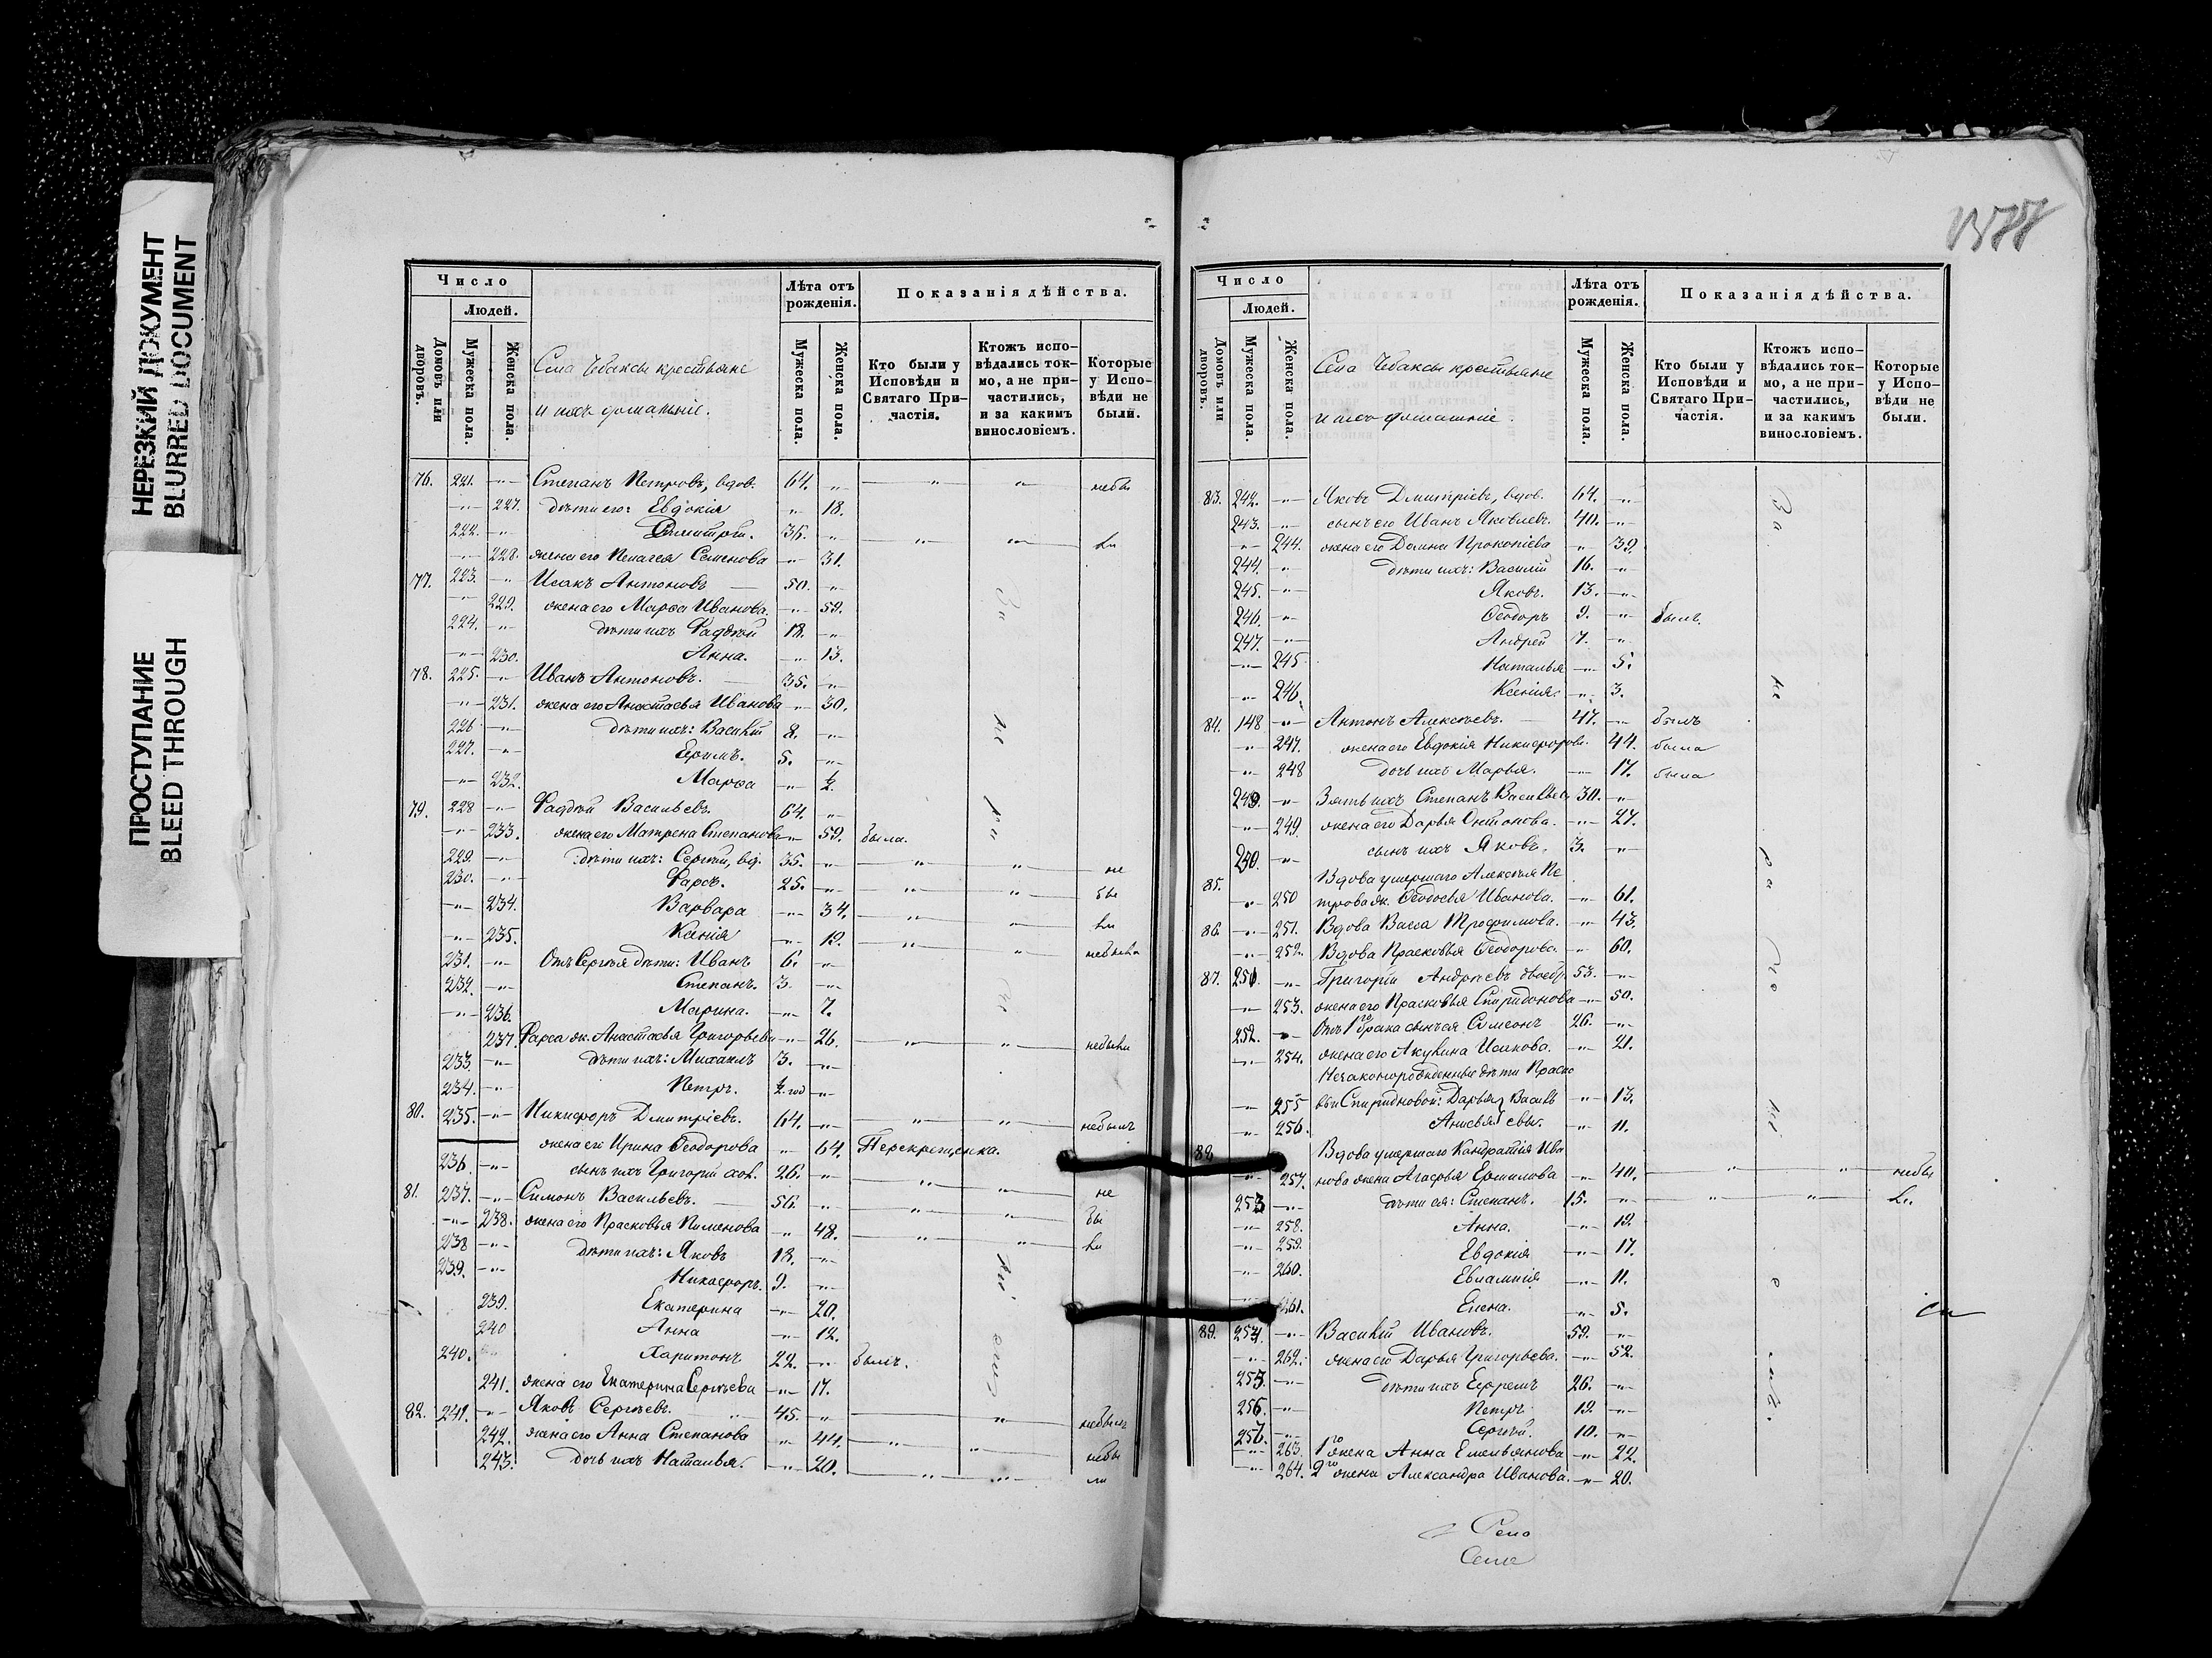 НЕРЕЗКИЙ ДОКУМЕНТ
BLURRED DOCUMENT
ПРОСТУПАНИЕ
BLEED THROUGH
Число
Людей.
Домовъ или дворовъ.
Мужеска пола.
Женска пола.
Села Чебаксы крестьяне
и ихъ домашніе.
Лѣта отъ рожденія.
Мужеска пола.
Женска пола.
Показанія дѣйства.
Кто были у Исповѣди и Святаго Причастія.
Ктожъ исповѣдались токмо, а не причастились, и за какимъ винословіемъ.
Которые у Исповѣди не были.
76. 221. -"- Степанъ Петровъ, вдов. 64. " " " небы
-"- 227. дѣти его: Евдокія " 18.
222. -"- Димитрій. 36. " " " ли
-"- 228. жена его Пелагея Семенова -"- 31.
77. 223. -"- Исакъ Антоновъ 50. -"-
-"- 229. жена его Марѳа Иванова. -"- 59.
224. -"- дѣти ихъ Фадѣй 18. -"-
-"- 230. Анна. -"- 13.
78. 225. -"- Иванъ Антоновъ. 35. -"-
-"- 231. жена его Анастасья Иванова -"- 30.
226 -"- дѣти ихъ: Василій 8. -"-
227. -"- Ефимъ. 5. -"-
-"- 232. Марѳа -"- ½.
79. 228 -"- Фадѣй Васильевъ. 64. "
-"- 233. жена его Матрена Степанова -"- 59. была.
229. -"- дѣти ихъ: Сергѣй, вд. 35. -"- " " не
230. -"- Фарсъ. 25. -"- " " бы
-"- 234. Варвара -"- 34. " " ли
-"- 235. Ксенія -"- 19. " " небыла
231. -"- Отъ Сергѣя дѣти: Иванъ 6. -"-
232. -"- Степанъ. 3. -"-
-"- 236. Марина. -"- 7.
237. Фарса ж. Анастасья Григорьева -"- 26. " " небыли
233. -"- дѣти ихъ: Михаилъ 3. -"-
234. -"- Петръ. ½ год -"-
80. 235. -"- Никифоръ Дмитріевъ. 64. -"- " " небылъ
жена его Ирина Ѳеодорова " 64. Перекрещенка.
236. -"- сынъ ихъ Григорій хол. 26. -"- " " не
81. 237. -"- Симонъ Васильевъ. 56. " " " бы
-"- 238. жена его Прасковья Пименова " 48. " " ли
238 -"- дѣти ихъ: Яковъ 18. -"-
239. -"- Никифоръ. 9. -"-
239. Екатерина -"- 20.
240 Анна -"- 12.
240. Харитонъ 22. -"- былъ.
241. жена его Екатерина Сергѣева -"- 17.
82. 241. -"- Яковъ Сергѣевъ. 45. -"- " небылъ
242. жена его Анна Степанова " 44. " " небы
243. дочь ихъ Наталья. -"- 20. " " ли
За не ра
Число
Людей.
Домовъ или дворовъ.
Мужеска пола.
Женска пола.
Села Чебаксы крестьяне
и ихъ домашніе.
Лѣта отъ рожденія.
Мужеска пола.
Женска пола.
Показанія дѣйства.
Кто были у Исповѣди и Святаго Причастія.
Ктожъ исповѣдались токмо, а не причастились, и за какимъ винословіемъ.
Которые у Исповѣди не были.
83. 242. -"- Яковъ Дмитріевъ, вдов. 64. -"-
243. -"- сынъ его Иванъ Яковлевъ. 40. -"-
-"- 244. жена его Домна Прокопіева " 39.
244. -"- дѣти ихъ: Василій 16. -"-
245. -"- Яковъ. 13. -"-
246. -"- Ѳеодоръ 9. -"- былъ.
247. -"- Андрей 7. -"-
-"- 245. Наталья -"- 5.
-"- 246. Ксенія. -"- 3.
84. 148 -"- Антонъ Алексѣевъ. 47. -"- былъ
-"- 247. жена его Евдокія Никифоров. 44. была
-"- 248 дочь ихъ Марья. -"- 17. была
249. -"- Зять ихъ Степанъ Васильев. 30. -"-
-"- 249. жена его Дарья Онтонова. -"- 27.
250. -"- сынъ ихъ Яковъ. 3. -"-
85. Вдова умершаго Алексѣя Пе
-"- 250 трова ж. Ѳеодосья Иванова. -"- 61.
86. -"- 251. Вдова Васса Трофимова. -"- 43.
-"- 252. Вдова Прасковья Ѳеодоров. " 60.
87. 251. -"- Григорій Андреевъ двоебр. 53. -"-
-"- 253. жена его Прасковья Спиридонова -"- 50.
252. -"- Отъ 1го брака сынъ ея Симеонъ 26. -"-
-"- 254. жена его Акулина Исакова. -"- 21.
Незаконорожденные дѣти Праско
-"- 255 вьи Спиридновой: Дарья } Василь -"- 13.
-"- 256. Анисья } евы. " 11.
88. Вдова умершаго Кондратія Ива
-"- 257. нова жена Агафья Ермилова -"- 40. " " небы
253 -"- дѣти ея: Степанъ. 15. -"- " " ли.
-"- 258. Анна. -"- 19.
-"- 259. Евдокія -"- 17.
-"- 260. Евлампія -"- 11.
-"- 261. Елена. -"- 5.
89. 254. -"- Василій Ивановъ. 59. -"-
-"- 262. жена его Дарья Григорьева. -"- 52.
255. -"- дѣти ихъ Ефремъ 26. -"-
256. -"- Петръ 19. -"-
256. -"- Сергѣй. 10. -"-
-"- 263. 1го жена Анна Емельянова -"- 22.
-"- 264. 2го жена Александра Иванова. -"- 20.
За не ра
Села